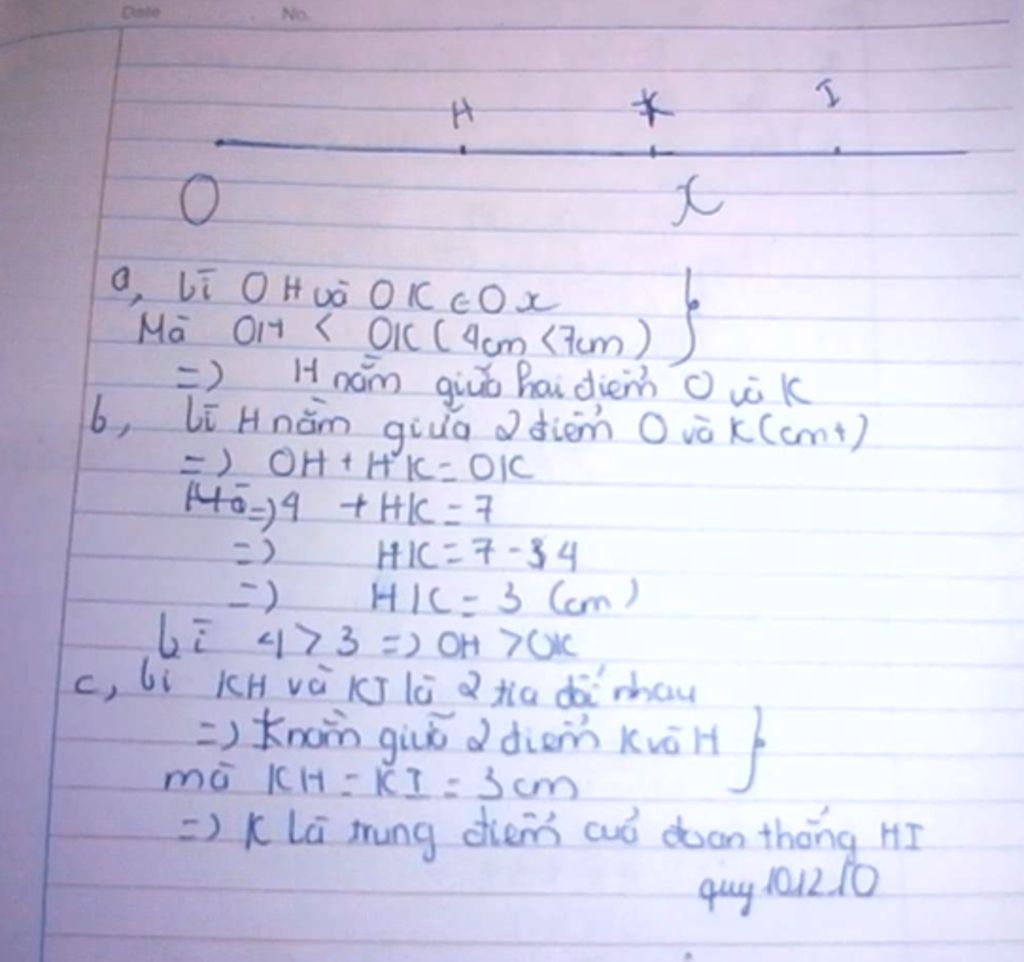 Date No.
H K I
O x
a, Vì OH và OK ∈ Ox
Mà OH < OK (4cm < 7cm)
=> H nằm giữa hai điểm O và K
b, Vì H nằm giữa 2 điểm O và K (cmt)
=> OH + HK = OK
=> 4 + HK = 7
=> HK = 7 - 4
=> HK = 3 (cm)
Vì 4 > 3 => OH > OK
c, Vì KH và KI là 2 tia đối nhau
=> K nằm giữa 2 điểm K và H
mà KH = KI = 3cm
=> K là trung điểm của đoạn thẳng HI
quy 101210